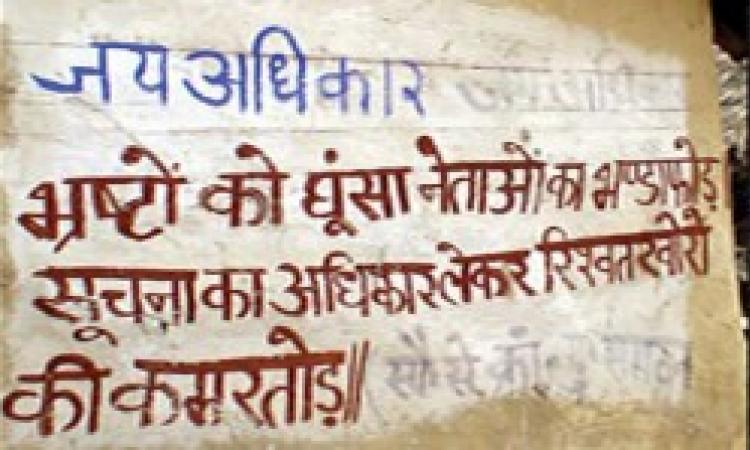 जय अधिकार
भ्रष्टों को घूंसा नेताओं का भण्डाफोड़
सूचना का अधिकार लेकर रिश्वतखोरो
की कमरतोड़||